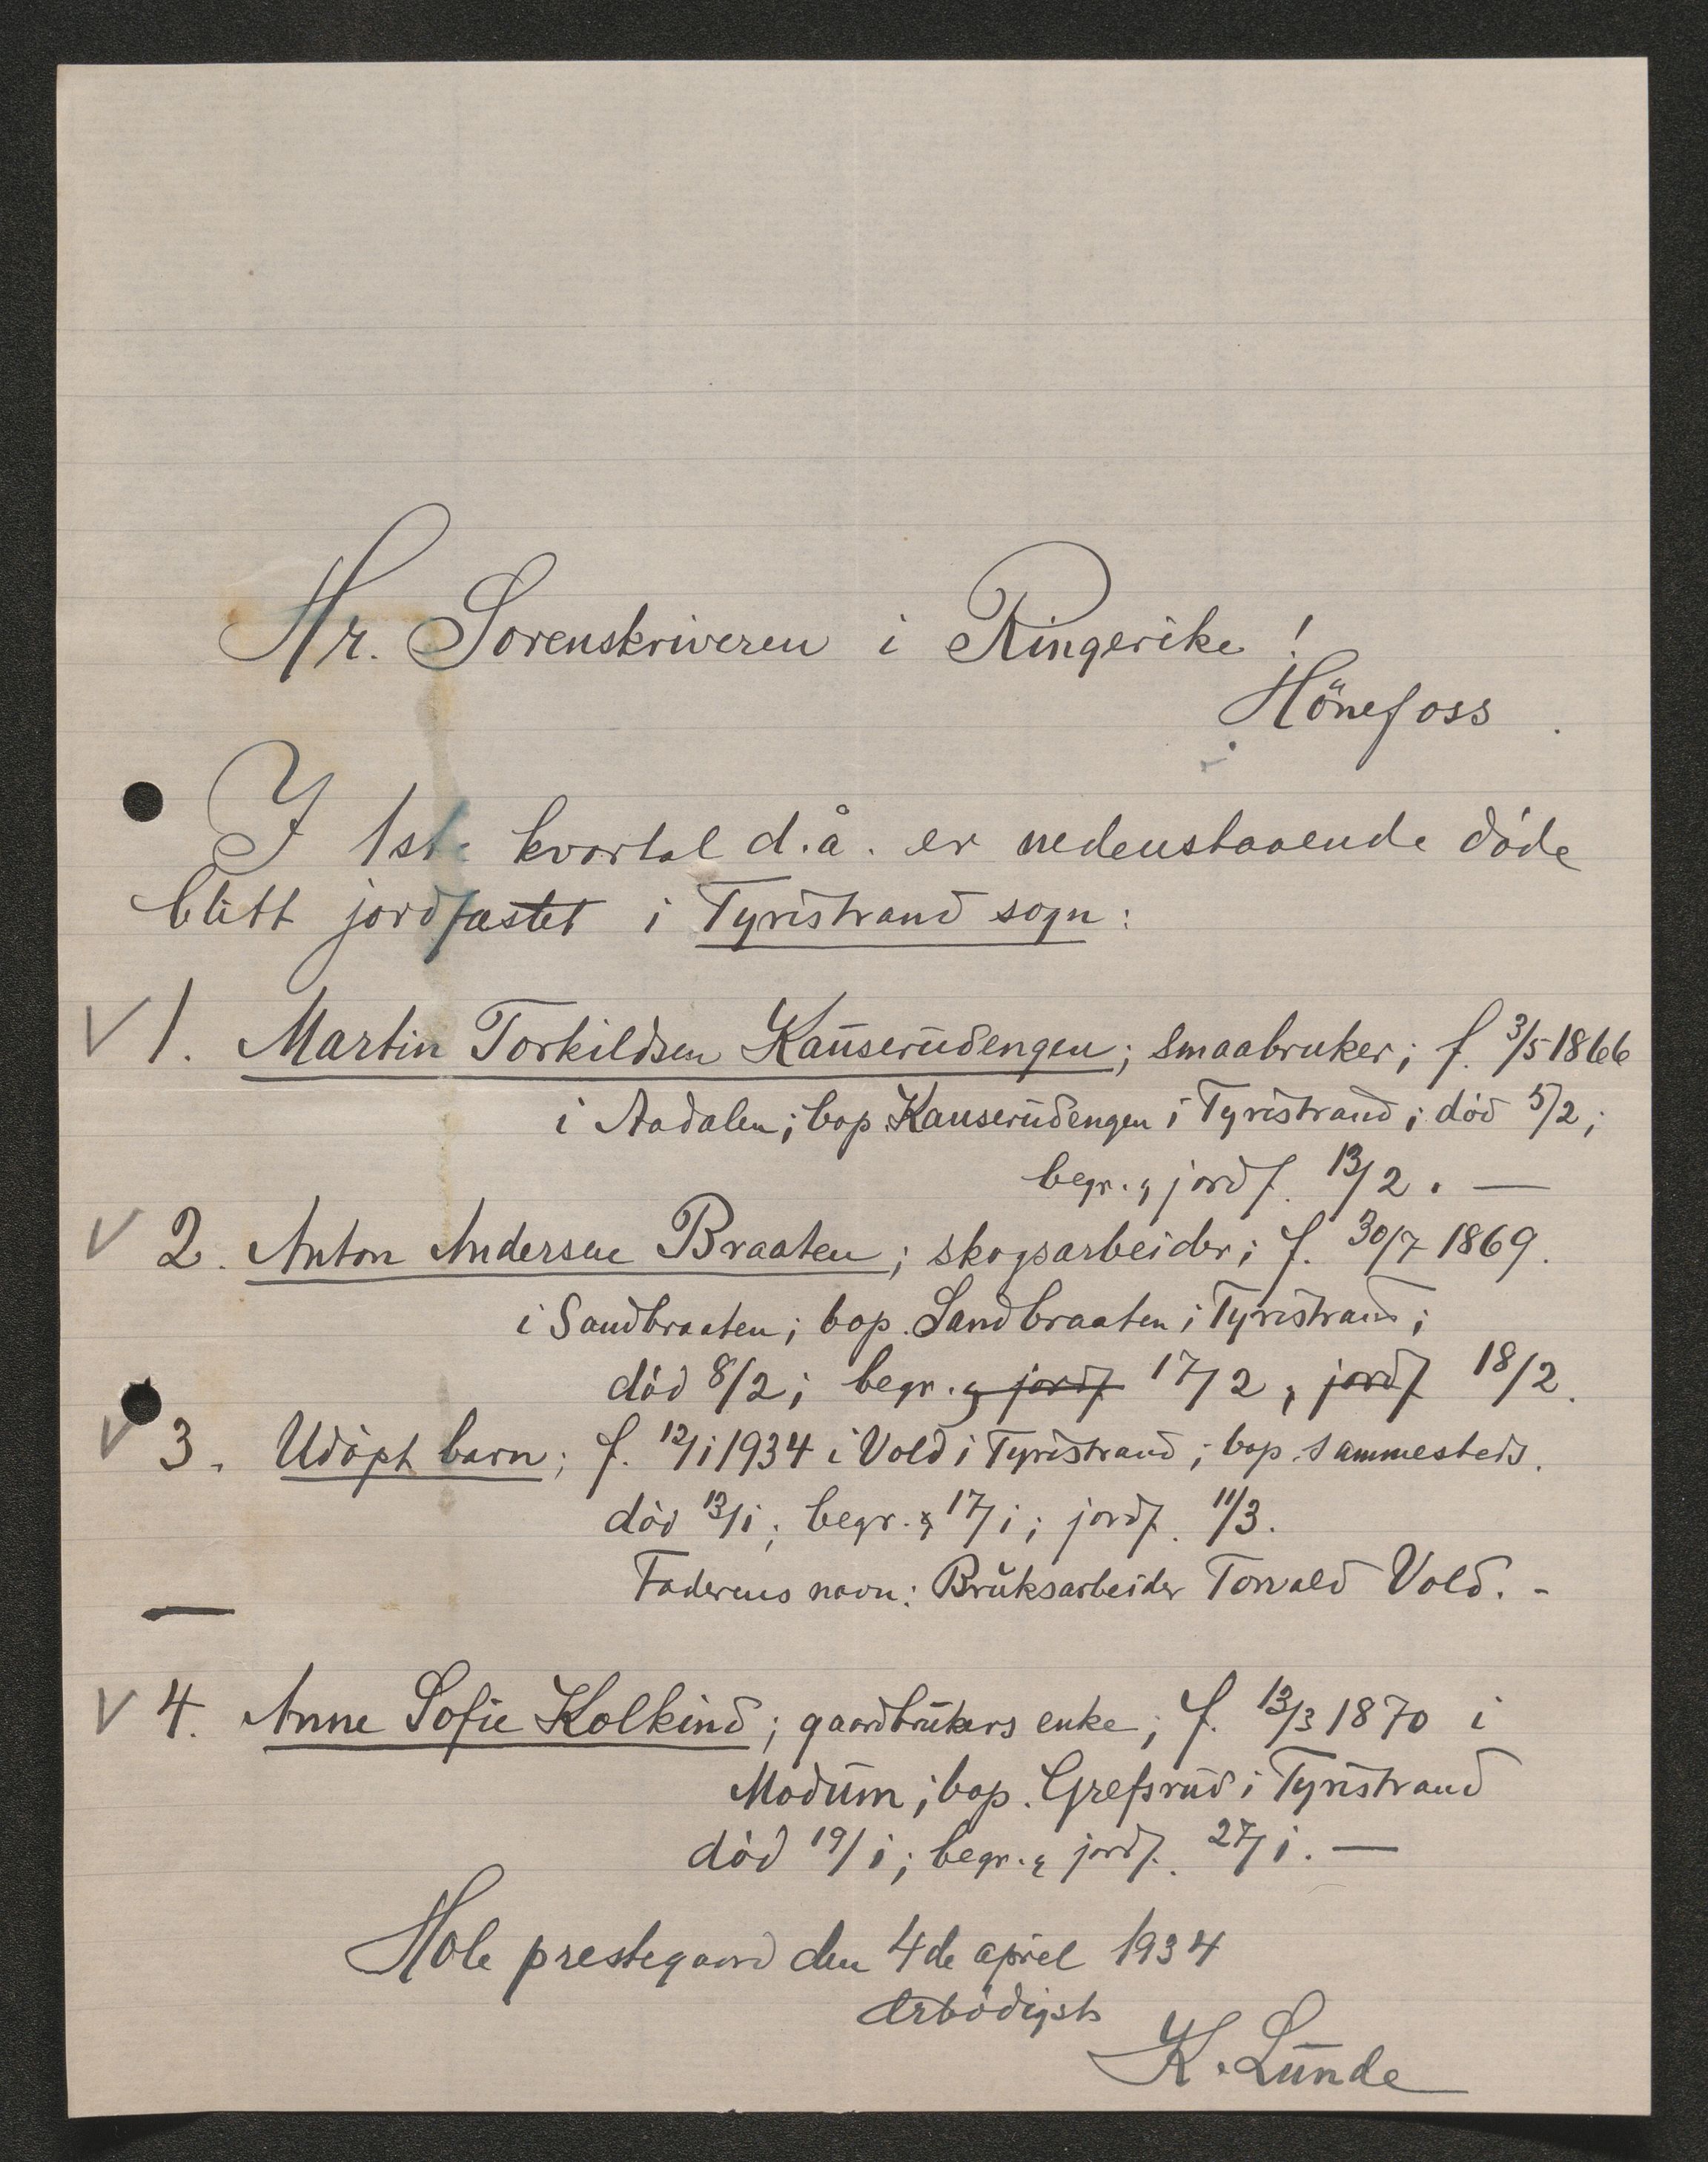 Hr. Sorenskriveren i Ringerike!
Hönefoss.
I 1ste kvartal d.å. er nedenstaaende döde
blitt jordfæstet i Tyristrand sogn:
V 1. Martin Torkildsen Kauserudengen; smaabruker; f. 3/5 1866
i Aadalen; bop. Kauserudengen i Tyristrand; död 5/2;
begr. & jordf. 13/2. —
V 2. Anton Andersen Braaten; skogsarbeider; f. 30/7 1869.
i Sandbraaten; bop. Sandbraaten i Tyristrand;
död 8/2; begr. & jordf 17/2, jordf 18/2.
V 3. Udöpt barn; f. 12/1 1934 i Vold i Tyristrand; bop. sammesteds.
död 13/1; begr. & 17/1; jordf. 11/3.
Faderens navn: Bruksarbeider Torvald Vold. -
V 4. Anne Sofie Kolkind; gaardbrukers enke; f. 13/3 1870 i
Modum; bop. Grefsrud i Tyristrand
död 19/1; begr. & jordf. 27/1. —
Hole prestegaard den 4de april 1934
Ærbödigst
K. Lunde